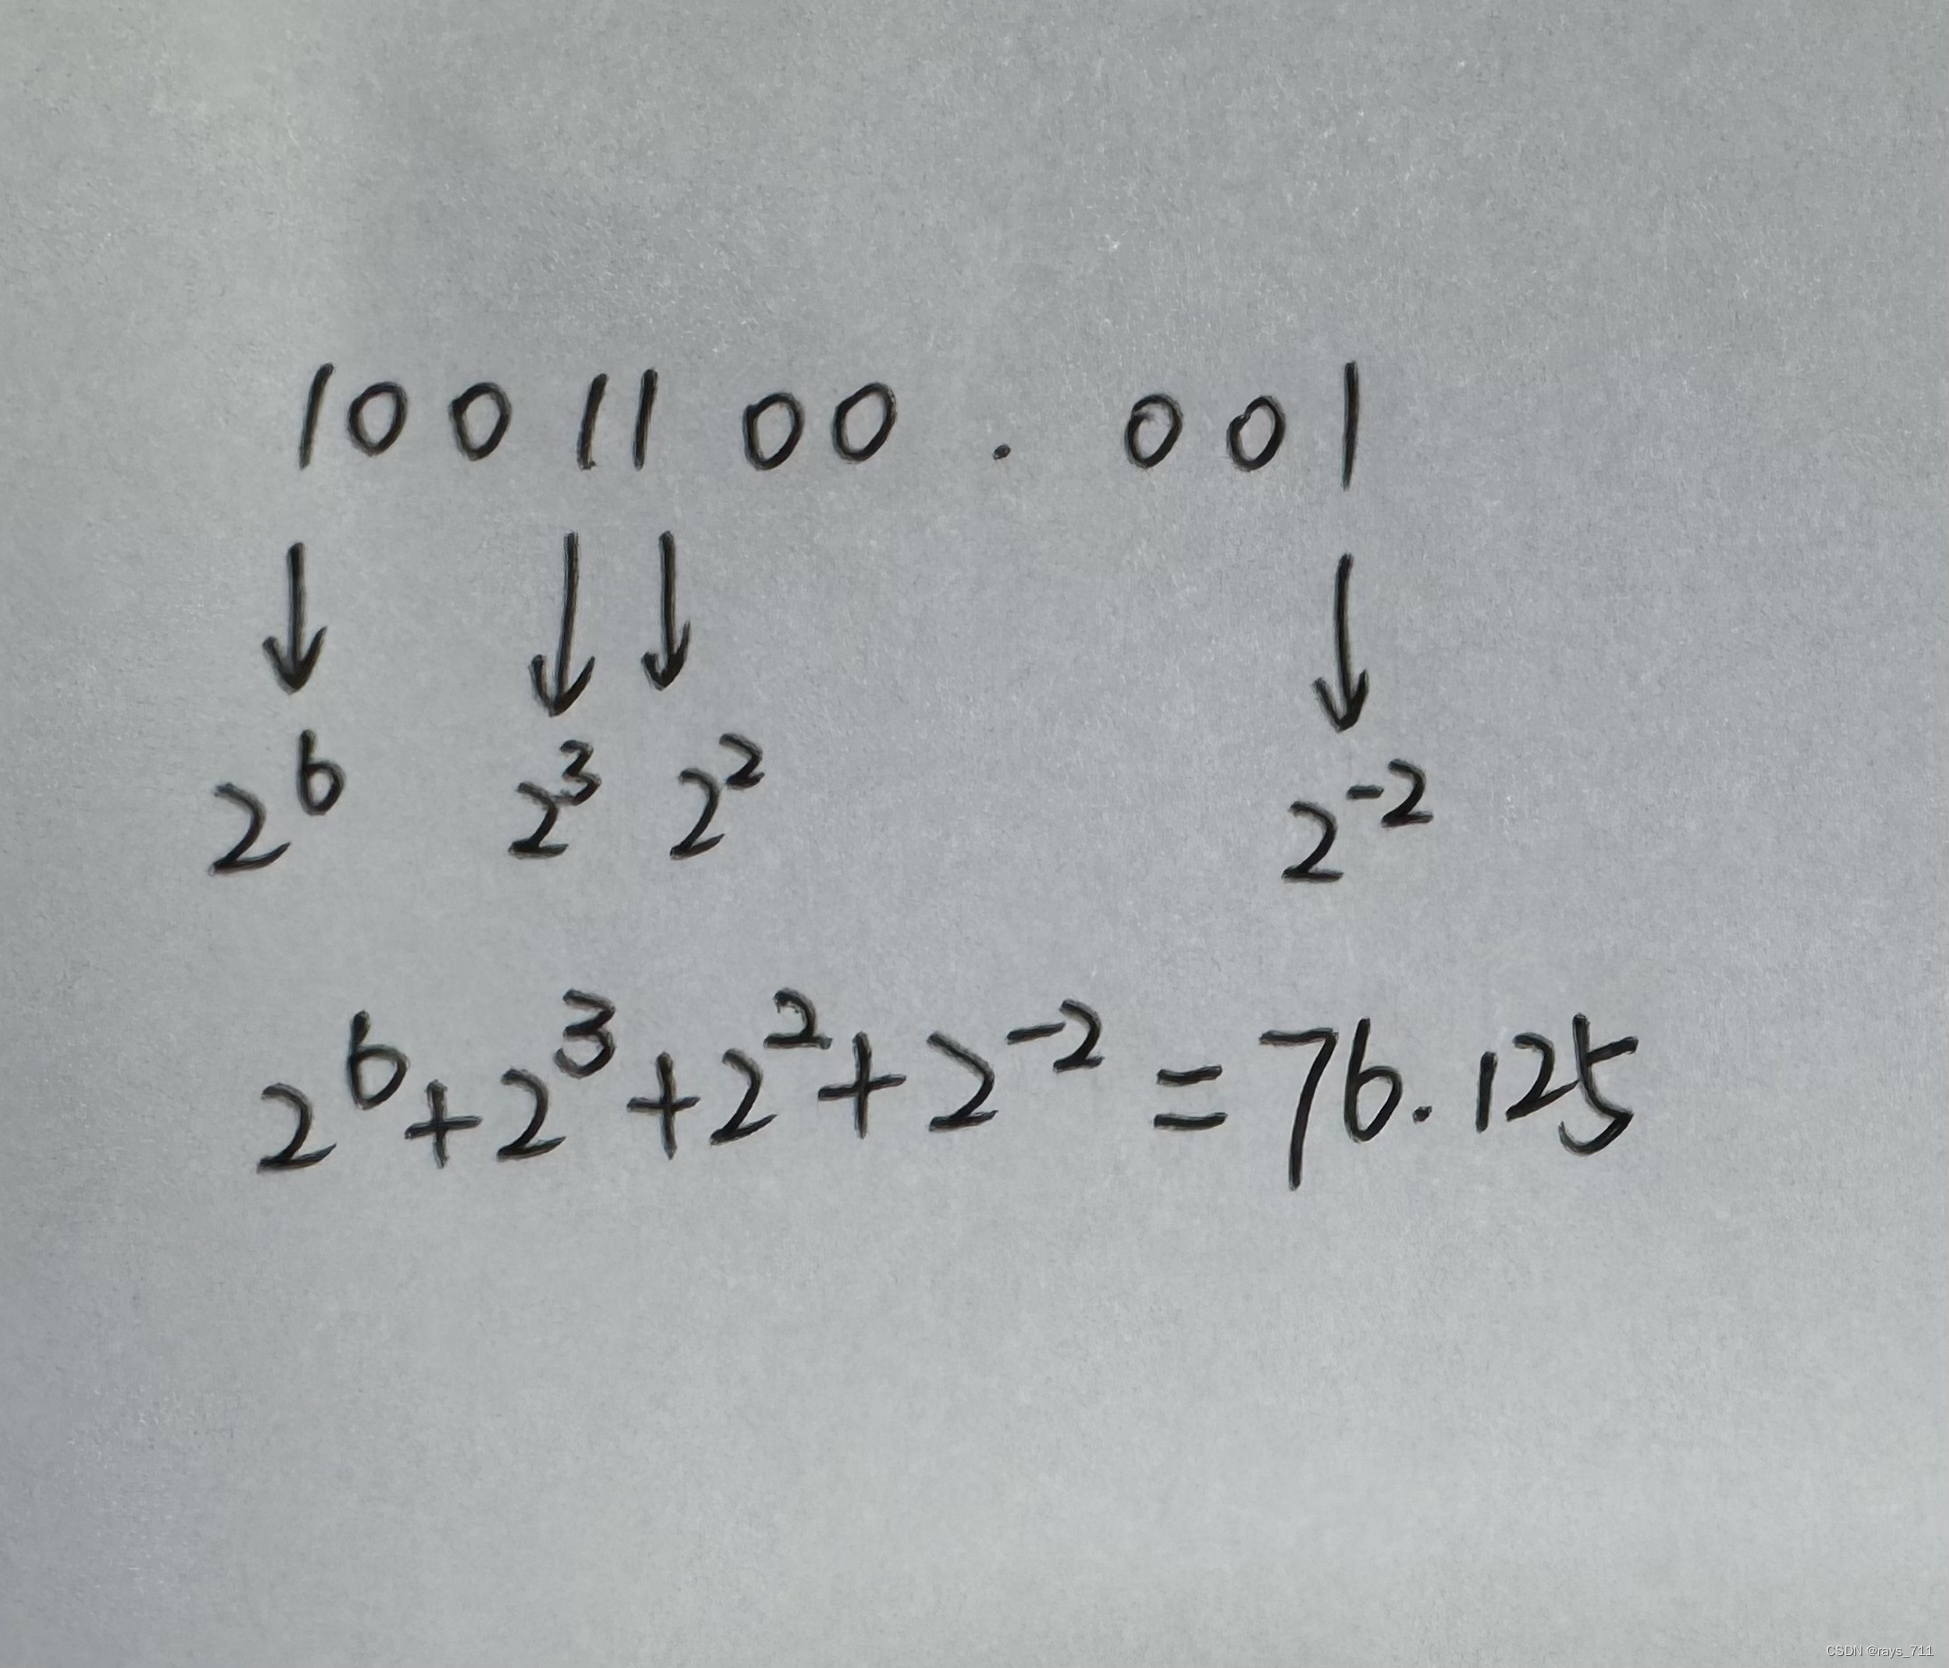 1001100.001
↓ ↓ ↓ ↓
2⁶ 2³ 2² 2⁻²
2⁶+2³+2²+2⁻²=76.125
CSDN @rays_711